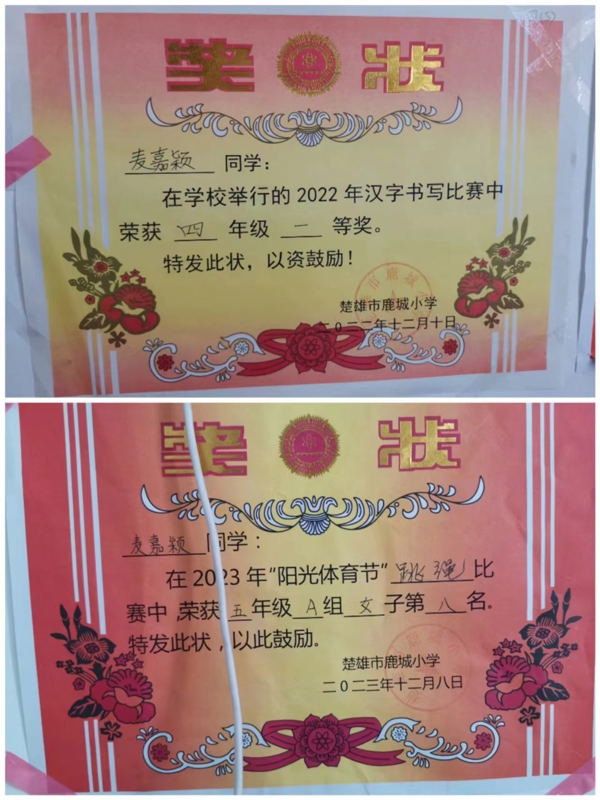 奖状
麦嘉颖 同学：
在学校举行的 2022 年汉字书写比赛中
荣获 四 年级 二 等奖。
特发此状，以资鼓励！
楚雄市鹿城小学
二0二二年十二月十日
奖状
麦嘉颖 同学：
在 2023 年“阳光体育节”跳绳比
赛中,荣获 五年级 A组 女子第 八 名。
特发此状，以此鼓励。
楚雄市鹿城小学
二0二三年十二月八日